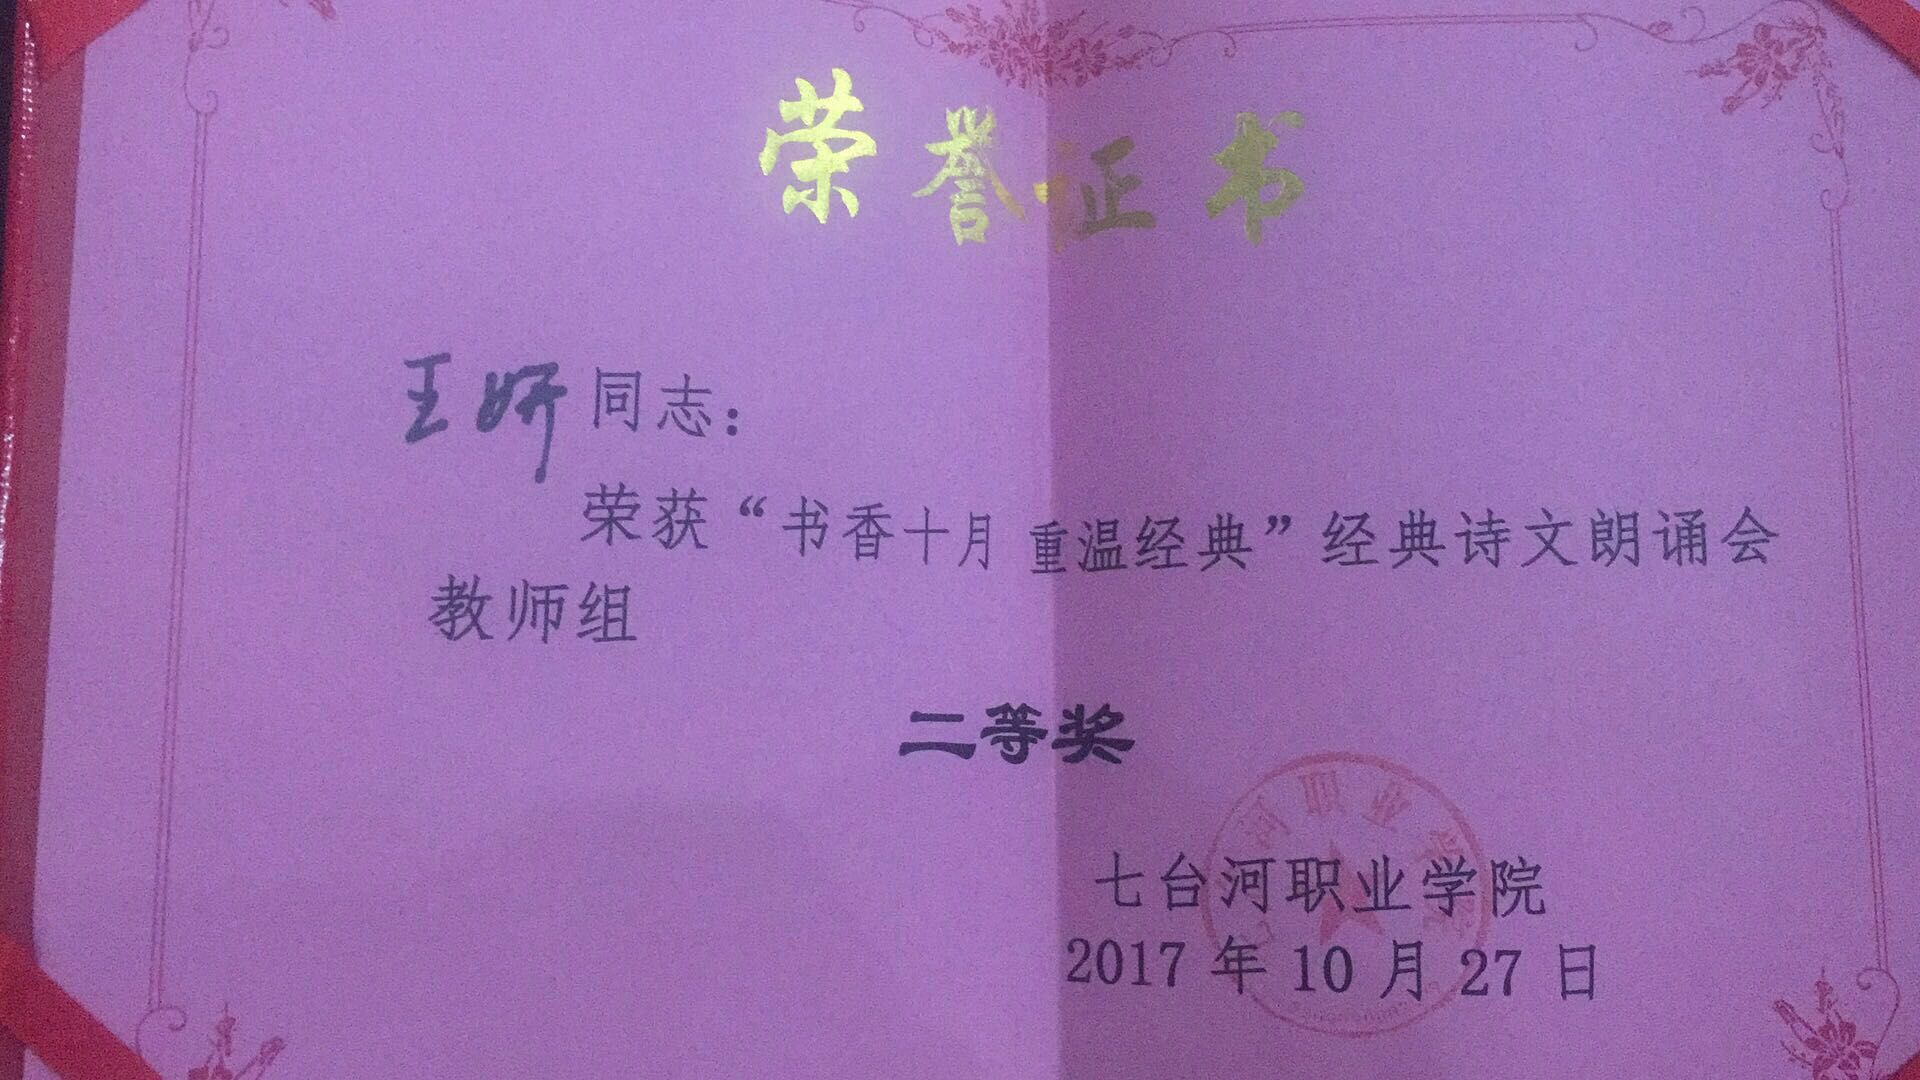 荣誉证书
王妍同志：
荣获“书香十月 重温经典”经典诗文朗诵会
教师组
二等奖
七台河职业学院
2017 年 10 月 27 日